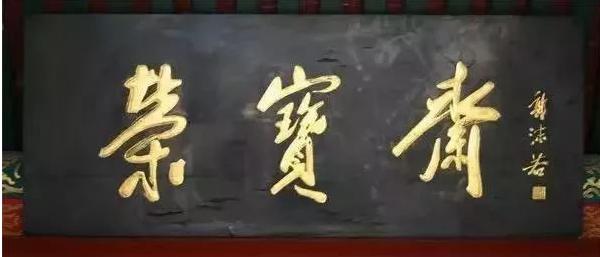 榮寳齋
郭沫若